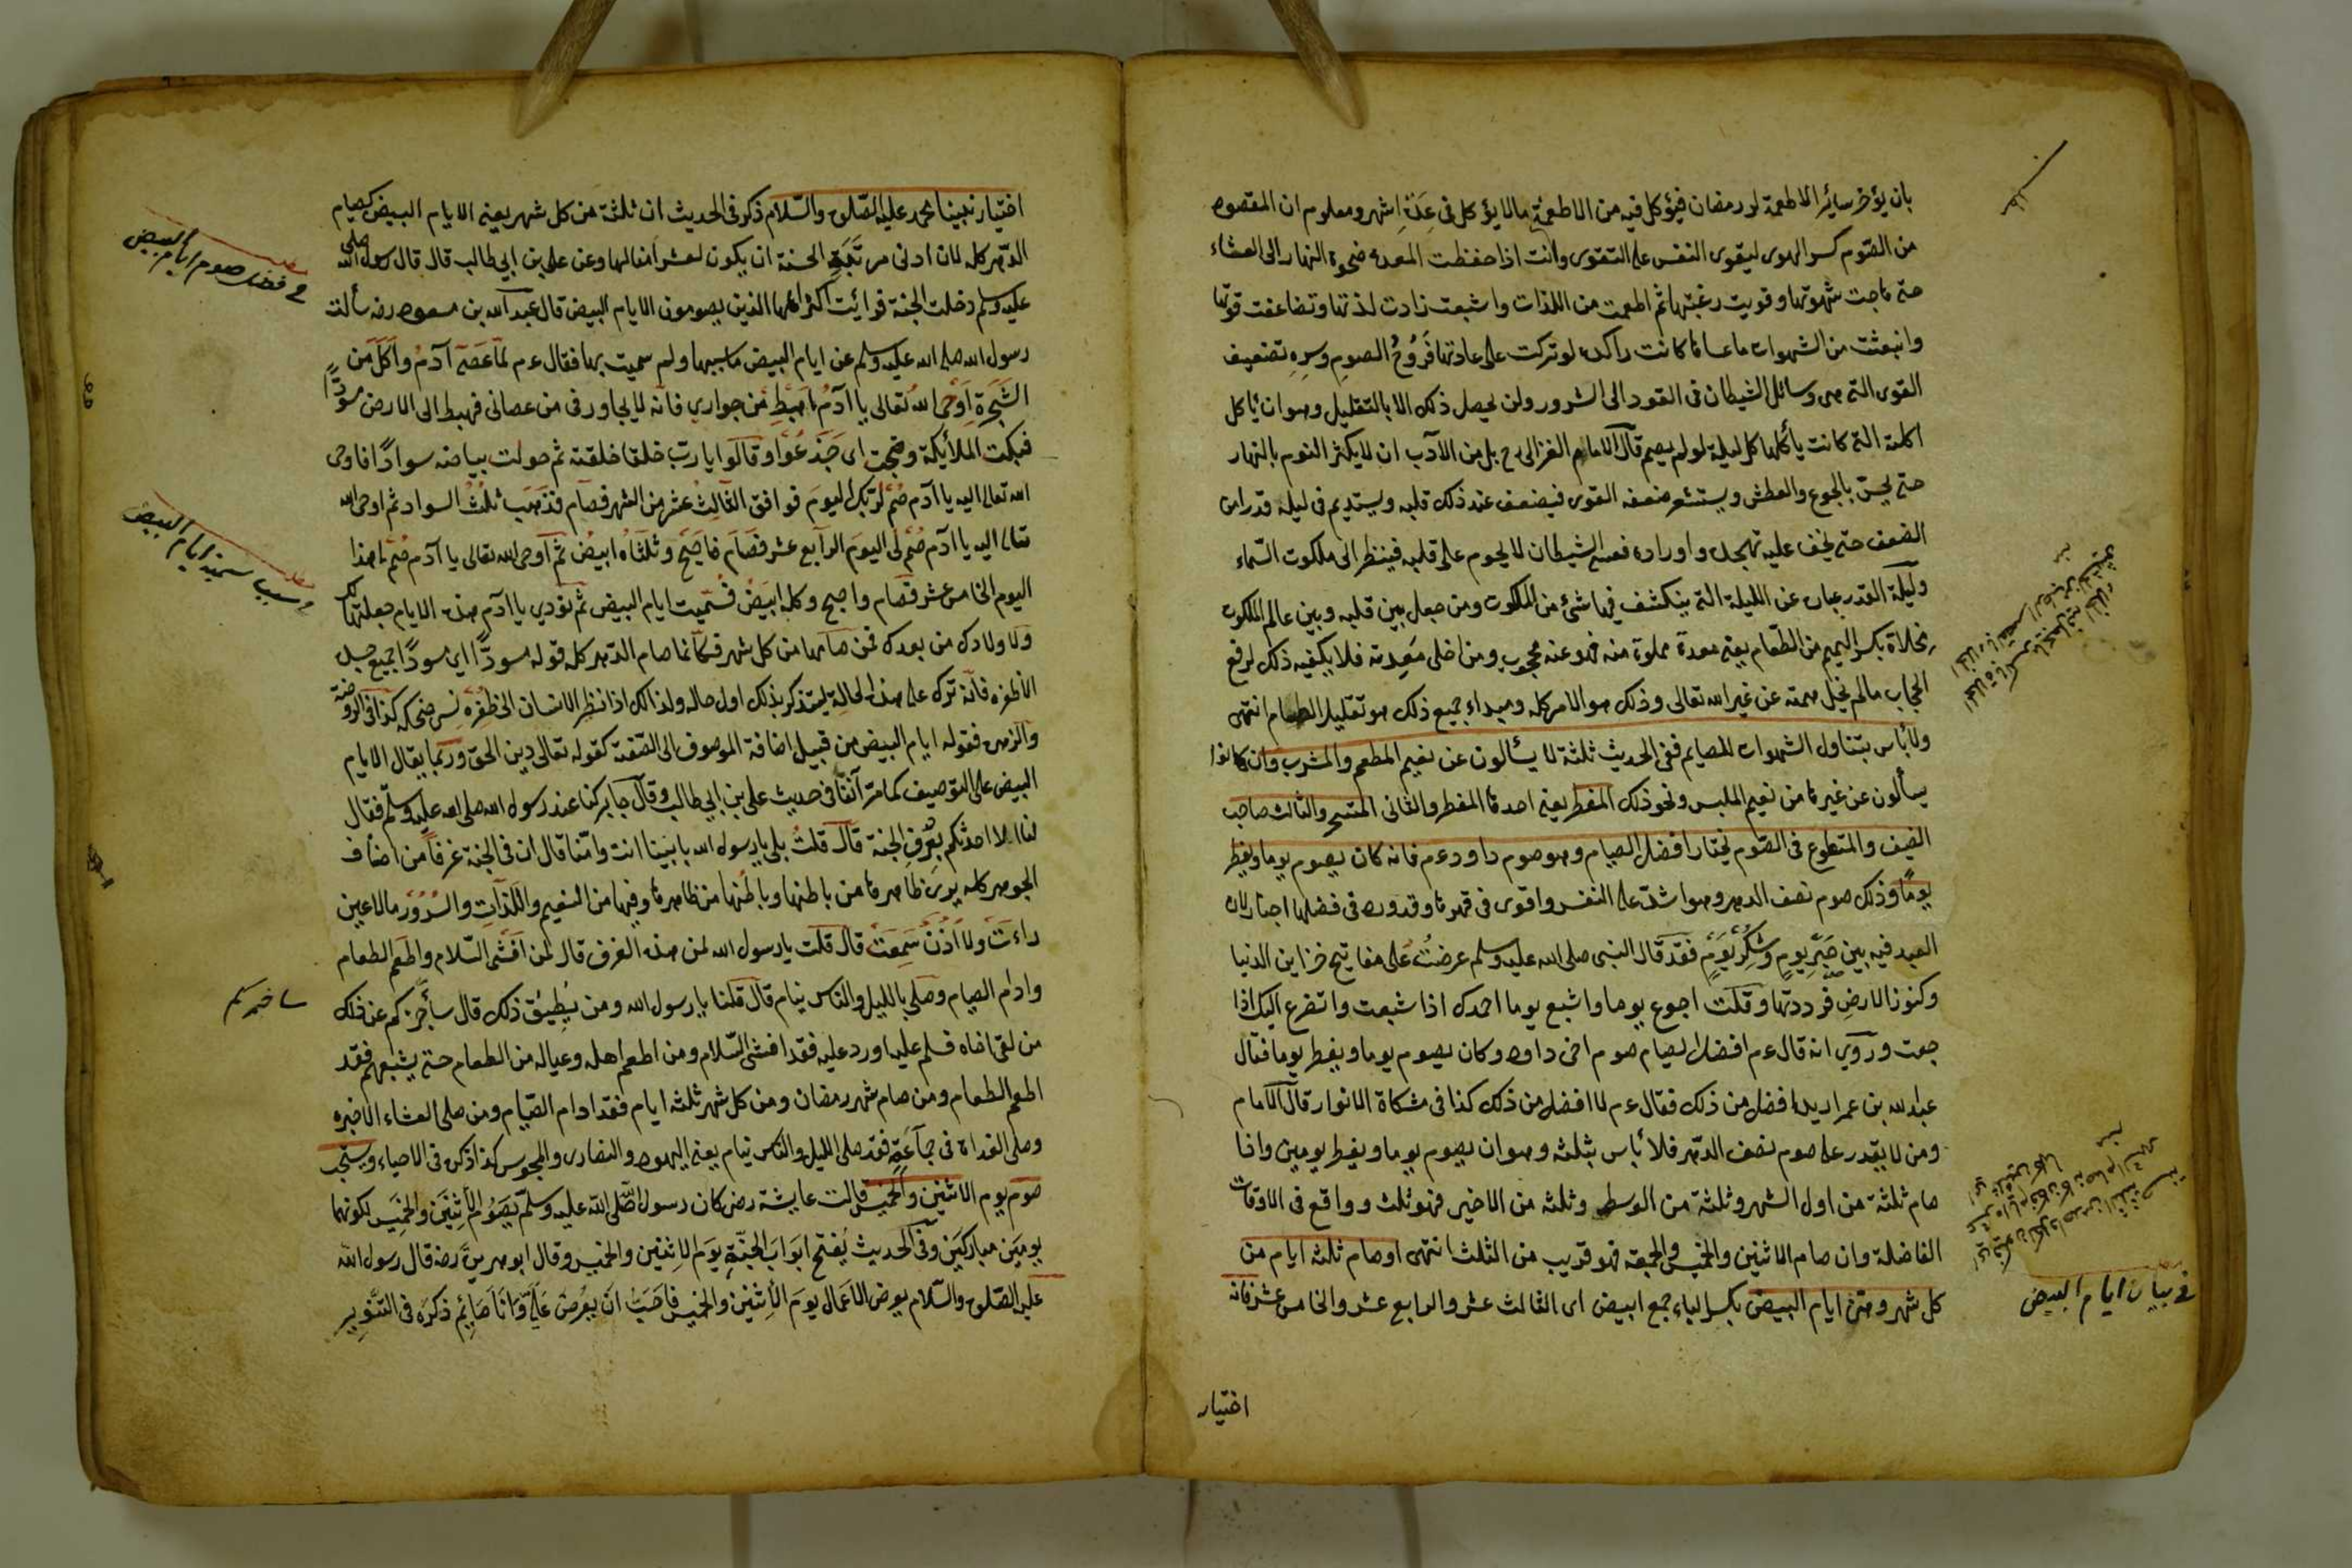 بان يؤخر سائر الاطعمة لو رمضان فيؤكل فيه من الاطعمة ما لا يؤكل فى عدة اشهر ومعلوم ان المقصود
من الصوم كسر الهوى ليقوى النفس على التقوى وانت اذا حفظت المعدة ضحوة النهار الى العشاء
حتى هاجت شهوتها وقويت رغبتها ثم اطعمت من اللذات واشبعت زادت لذتها وتضاعفت قوتها
وانبعثت من الشهوات ما عساها كانت راكدة لو تركت على عادتها فروح الصوم وسره تضعيف
القوى التى هى وسائل الشيطان فى القود الى الشرور ولن يحصل ذلك الا بالتقليل وهو ان يأكل
اكلته التى كانت يأكلها كل ليلة لو لم يصم قال الامام الغزالى رح بل من الآدب ان لا يكثر النوم بالنهار
حتى يحس بالجوع والعطش ويستشعر ضعف القوى فيضعف عند ذلك قلبه ويستديم فى ليلة قدرا من
الضعف حتى يخف عليه تهجده واوراده فعسى الشيطان لا يحوم على قلبه فينظر الى ملكوت السماء
وليلة القدر عبارة عن الليلة التى ينكشف فيها شئ من الملكوت ومن جعل بين قلبه وبين عالم الملكوت
مخلاة بكسر الميم من الطعام يعنى معدة مملوة منه فهو عنه محجوب ومن اخلى معدته فلا يكفيه ذلك لرفع
الحجاب ما لم يخل همته عن غير الله تعالى وذلك هو الامر كله ومبداء جميع ذلك هو تقليل الطعام انتهى
ولا بأس بتناول الشهوات للصايم ففى الحديث ثلثة لا يسألون عن نعيم المطعم والمشرب وان كانوا
يسألون عن غيرها من نعيم الملبس ونحو ذلك المفطر يعنى احدها المفطر والثانى المتسحر والثالث صاحب
الضيف والمتطوع فى الصوم يختار افضل الصيام وهو صوم داود عم فانه كان يصوم يوما ويفطر
يوما وذلك صوم نصف الدهر وهو اشد على النفس واقوى فى قهرها وقد ورد فى فضلها اخبار لان
العبد فيه بين صبر يوم وشكر يوم فقد قال النبى صلى الله عليه وسلم عرضت على مفاتيح خزاين الدنيا
وكنوز الارض فرددتها وقلت اجوع يوما واشبع يوما احمدك اذا شبعت واتضرع اليك اذا
جعت وروي انه قال عم افضل الصيام صوم اخى داود وكان يصوم يوما ويفطر يوما فقال
عبد الله بن عمر اريد افضل من ذلك فقال عم لا افضل من ذلك كذا فى مشكاة الانوار قال الامام
ومن لا يقدر على صوم نصف الدهر فلا بأس بثلثه وهو ان يصوم يوما ويفطر يومين واذا
صام ثلثة من اول الشهر وثلثة من الوسط وثلثه من الاخير فهو ثلث وواقع فى الاوقات
الفاضلة وان صام الاثنين والخميس والجمعة فهو قريب من الثلث انتهى او صام ثلثه ايام من
كل شهر وهى ايام البيض بكسر الباء جمع ابيض اى الثالث عشر والرابع عشر والخامس عشر فانه
فى بيان ايام البيض
اختيار
اختيار نبينا محمد عليه الصلوة والسلام ذكر فى الحديث ان ثلثة من كل شهر يعنى الايام البيض كصيام
الدهر كله لان ادنى مرتبة الحسنة ان يكون لعشر امثالها وعن على بن ابي طالب قال قال رسول الله صلى
عليه وسلم دخلت الجنة فرأيت اكثر اهلها الذين يصومون الايام البيض قال عبد الله بن مسعود رضه سألت
رسول الله صلى الله عليه وسلم عن ايام البيض ما سببها ولم سميت بها فقال عم لما عصى آدم واكل من
الشجرة اوحى الله تعالى يا آدم اهبط من جواري فانه لا يجاورنى من عصانى فهبط الى الارض مسودا
فبكت الملائكة وضجت اى جزعوا وقالوا يا رب خلقا خلقته ثم حولت بياضه سوادا فاوحى
الله تعالى اليه يا آدم صم لربك اليوم فوافق الثالث عشر من الشهر فصام فذهب ثلث السواد ثم اوحى الله
تعالى اليه يا آدم صم لى اليوم الرابع عشر فصام فاصبح وثلثاه ابيض ثم اوحى الله تعالى يا آدم صم هذا
اليوم الخامس عشر فصام واصبح وكله ابيض فسميت ايام البيض ثم نودي يا آدم هذه الايام جعلتها لك
ولاولادك من بعدك فمن صامها من كل شهر فكأنما صام الدهر كله قوله مسودا اي مسودا جميع جسده
الا ظفره فانه ترك على هذه الحالة ليتذكر بذلك اول حاله ولذالك اذا نظر الانسان الى ظفره نسى ضحكه كذا فى الروضة
والزهرة فقوله ايام البيض من قبيل اضافة الموصوف الى الصفة كقوله تعالى دين الحق وربما يقال الايام
البيض على التوصيف كما مر آنفا فى حديث على بن ابي طالب وقال جابر كنا عند رسول الله صلى الله عليه وسلم فقال
لنا الا احدثكم بغرف الجنة قال قلت بلى يا رسول الله بابينا انت وامنا قال ان فى الجنة غرفا من اصناف
الجوهر كله يرى ظاهرها من باطنها وباطنها من ظاهرها وفيها من النعيم واللذات والسرور ما لا عين
راءت ولا اذن سمعت قال قلت يا رسول الله لمن هذه الغرف قال لمن افشى السلام واطعم الطعام
وادام الصيام وصلى بالليل والناس نيام قال قلنا يا رسول الله ومن يطيق ذلك قال سأخبركم عن ذلك
من لقى اخاه فسلم عليه او رد عليه فقد افشى السلام ومن اطعم اهله وعياله من الطعام حتى يشبعهم فقد
اطعم الطعام ومن صام شهر رمضان ومن كل شهر ثلثه ايام فقد ادام الصيام ومن صلى العشاء الاخيره
وصلى الغداة فى جماعة فقد صلى الليل والناس نيام يعنى اليهود والنصارى والمجوس كذا ذكره فى الاحياء ويستحب
صوم يوم الاثنين والخميس قالت عايشة رض كان رسول الله صلى الله عليه وسلم يصوم الاثنين والخميس لكونهما
يومين مباركين وفى الحديث يفتح ابواب الجنة يوم الاثنين والخميس وقال ابو هريرة رضه قال رسول الله
عليه الصلوة والسلام يعرض الاعمال يوم الاثنين والخميس فاحب ان يعرض عملى وانا صايم ذكره فى التنوير
فى فضل صوم ايام البيض
سبب تسميه ايام البيض
ساخبركم